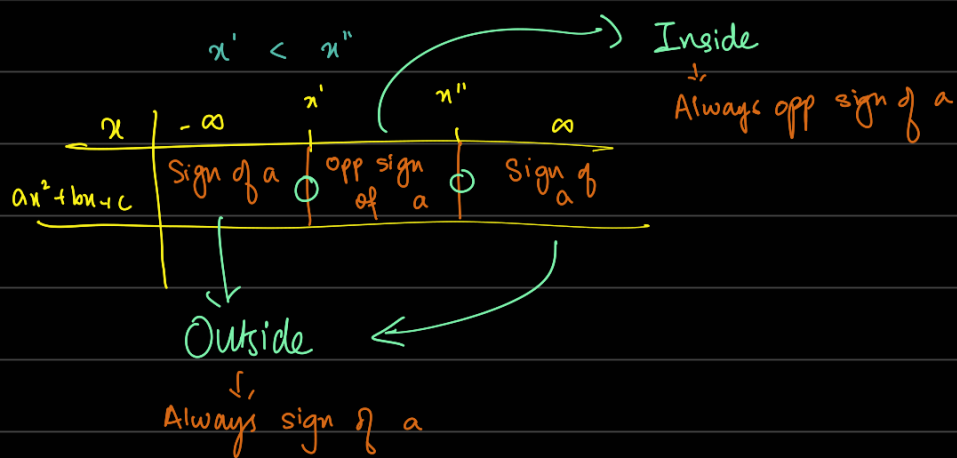 x' < x"
Inside
Always opp sign of a
x' x"
x -∞ ∞
Sign of a opp sign of a Sign of a
ax²+bx+c
Outside
Always sign of a